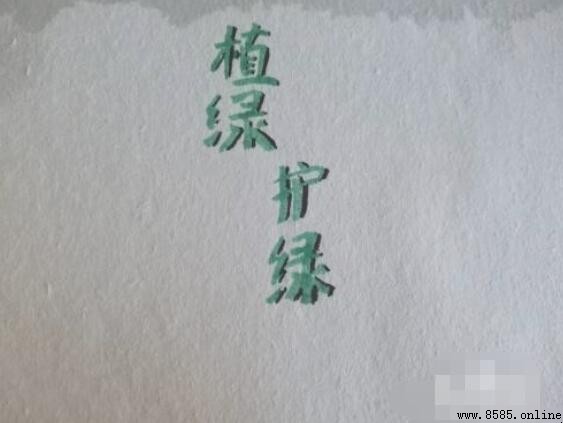 植绿
护绿
www.8585.online